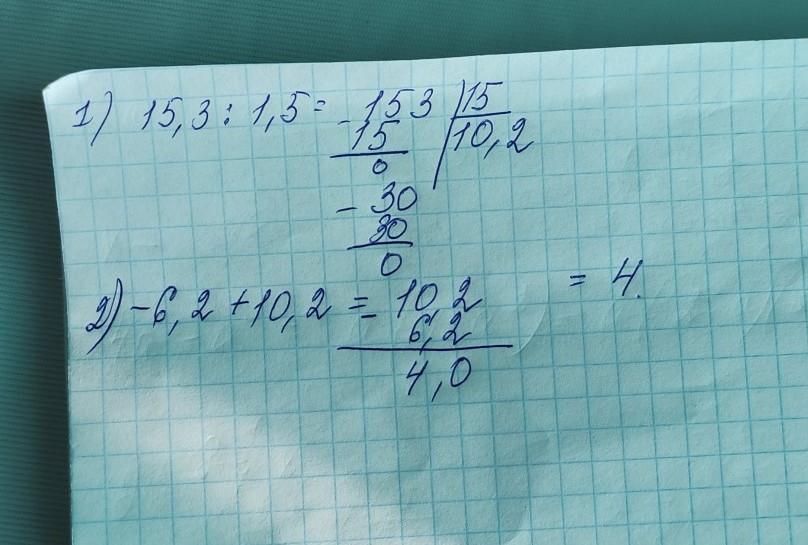 1) 15,3 : 1,5 = - 153 | 15
15 | 10,2
0
- 30
30
0
2) -6,2 + 10,2 = - 10,2 = 4.
6,2
4,0